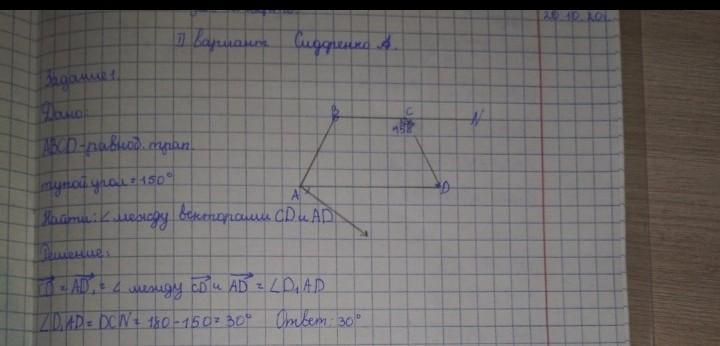 II вариант Сидоренко А.
Задание 1.
Дано:
ABCD-равноб. трап.
тупой угол = 150°
Найти: ∠ между векторами CD и AD
Решение:
CD = AD₁ = ∠ между CD и AD = ∠D₁AD
∠D₁AD = DCN = 180 - 150 = 30° Ответ: 30°
B C N
A D